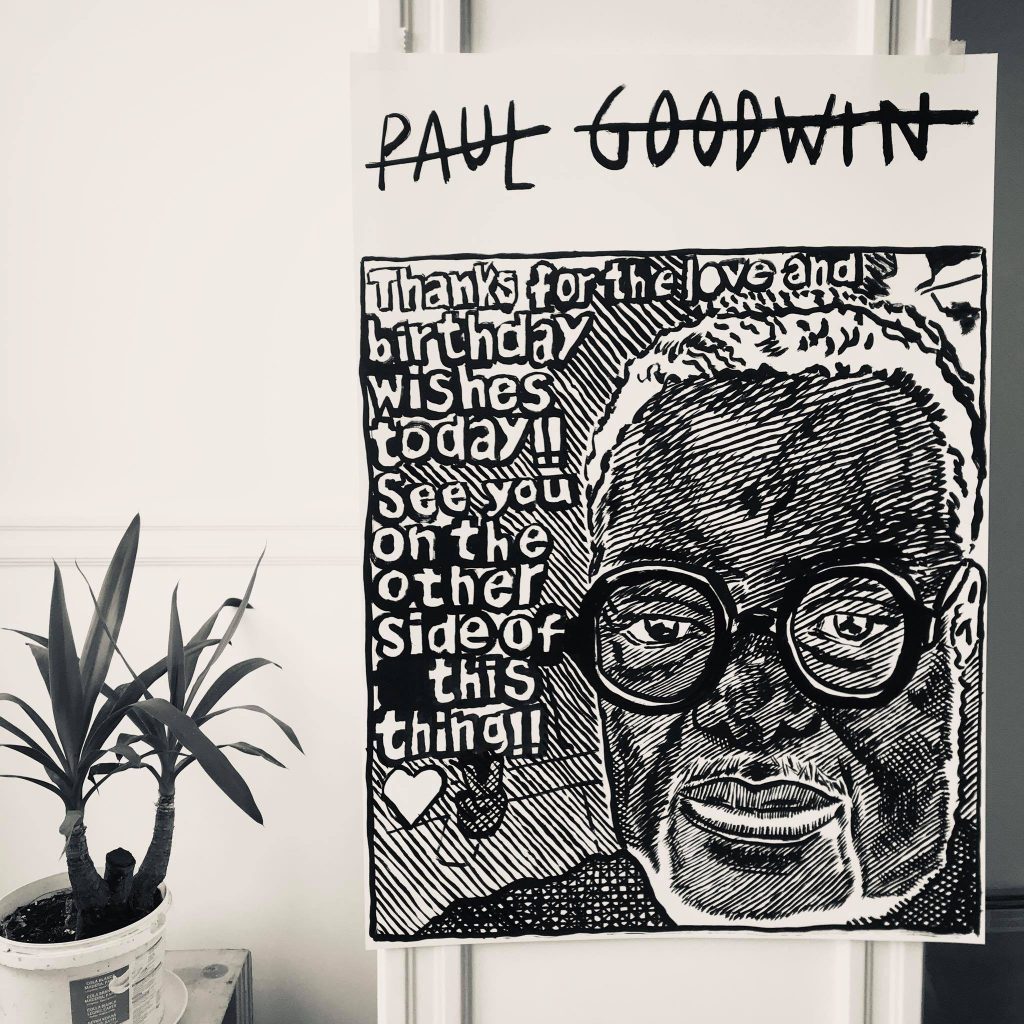 PAUL GOODWIN
Thanks for the love and
birthday
wishes
today!!
See you
on the
other
side of
this
thing!!